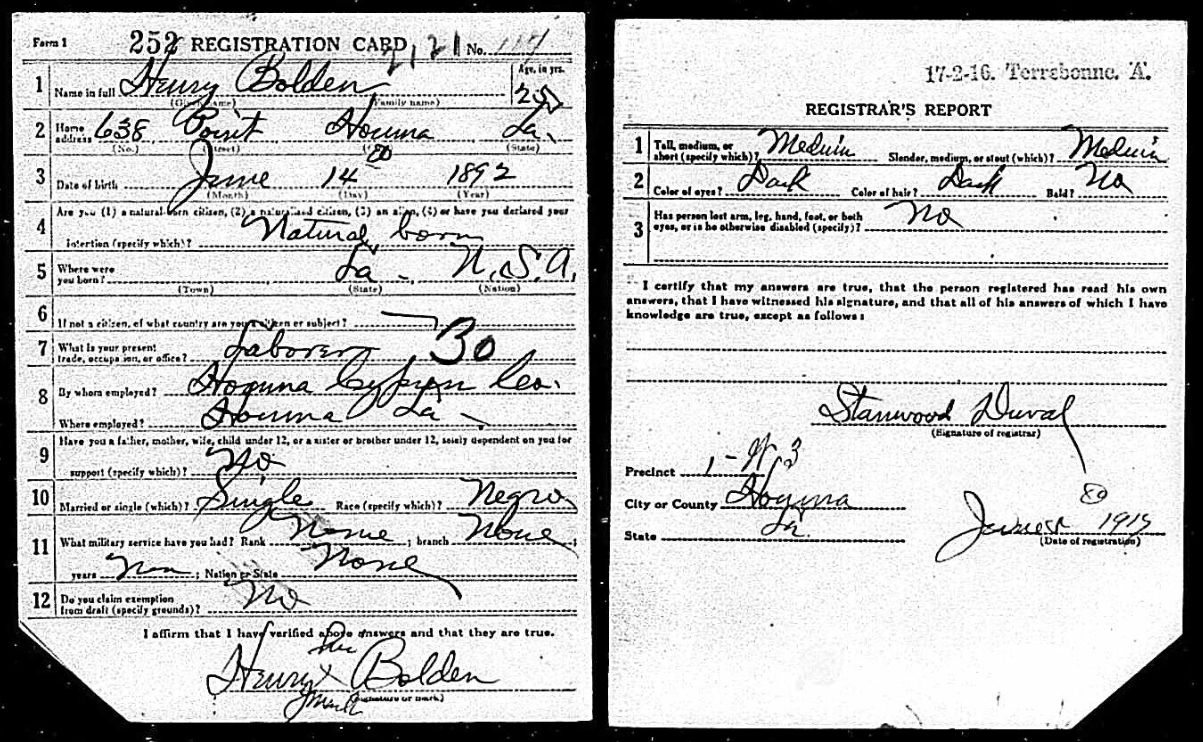 Form 1 252 REGISTRATION CARD No. 117
1 Name in full Henry Bolden Age, in yrs.
(Given name) (Family name) 25
2 Home address 638 Point Houma La.
(No.) (Street) (State)
3 Date of birth June 14 1892
(Month) (Day) (Year)
4 Are you (1) a natural-born citizen, (2) a naturalized citizen, (3) an alien, (4) or have you declared your
intention (specify which)? Natural born
5 Where were you born? La. U.S.A.
(Town) (State) (Nation)
6 If not a citizen, of what country are you a citizen or subject?
7 What is your present trade, occupation, or office? Laborer 30
8 By whom employed? Houma Cypress Co.
Where employed? Houma La
9 Have you a father, mother, wife, child under 12, or a sister or brother under 12, solely dependent on you for
support (specify which)? No
10 Married or single (which)? Single Race (specify which)? Negro
11 What military service have you had? Rank None ; branch None ;
years ; Nation or State None
12 Do you claim exemption from draft (specify grounds)? No
I affirm that I have verified above answers and that they are true.
his
Henry x Bolden
mark (Signature or mark)
17-2-16. Terrebonne. A.
REGISTRAR'S REPORT
1 Tall, medium, or short (specify which)? Medium Slender, medium, or stout (which)? Medium
2 Color of eyes? Dark Color of hair? Dark Bald? No
3 Has person lost arm, leg, hand, foot, or both eyes, or is he otherwise disabled (specify)? No
I certify that my answers are true, that the person registered has read his own
answers, that I have witnessed his signature, and that all of his answers of which I have
knowledge are true, except as follows:
Stanwood Duval
(Signature of registrar)
Precinct 1 - W 3
City or County Houma
State La. June 1917
(Date of registration)